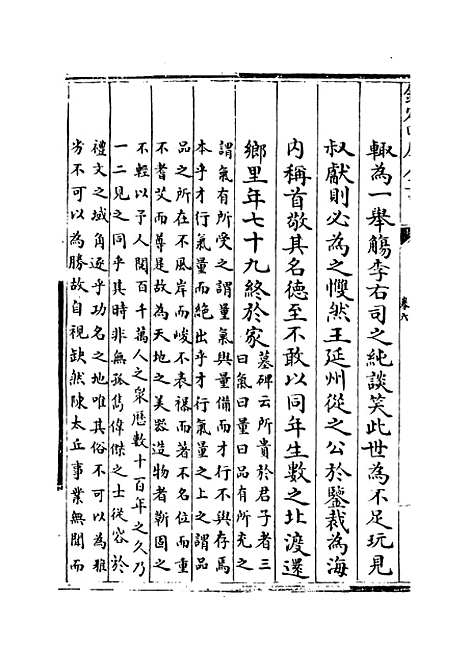 欽定四庫全書
卷六
輙為一舉觴李右司之純談笑此世為不足玩見
叔獻則必為之戄然王延州從之公於鑒裁為海
内稱首敬其名德至不敢以同年生數之北渡還
鄉里年七十九終於家墓碑云所貴於君子者三
曰氣曰量曰品有所充之
謂氣有所受之謂量氣與量備而才行不與存焉
本乎才行氣量而絶出乎才行氣量之上之謂品
品之所在不風岸而峻不表襮而著不名位而重
不耆艾而尊是故為天地之美器造物者靳固之
不輕以予人閲百千萬人之衆歴數十百年之久乃
一二見之同乎其時非無孤雋偉傑之士從容於
禮文之域角逐乎功名之地唯其俗不可以為雅
劣不可以為勝故自視缺然陳太丘事業無聞而